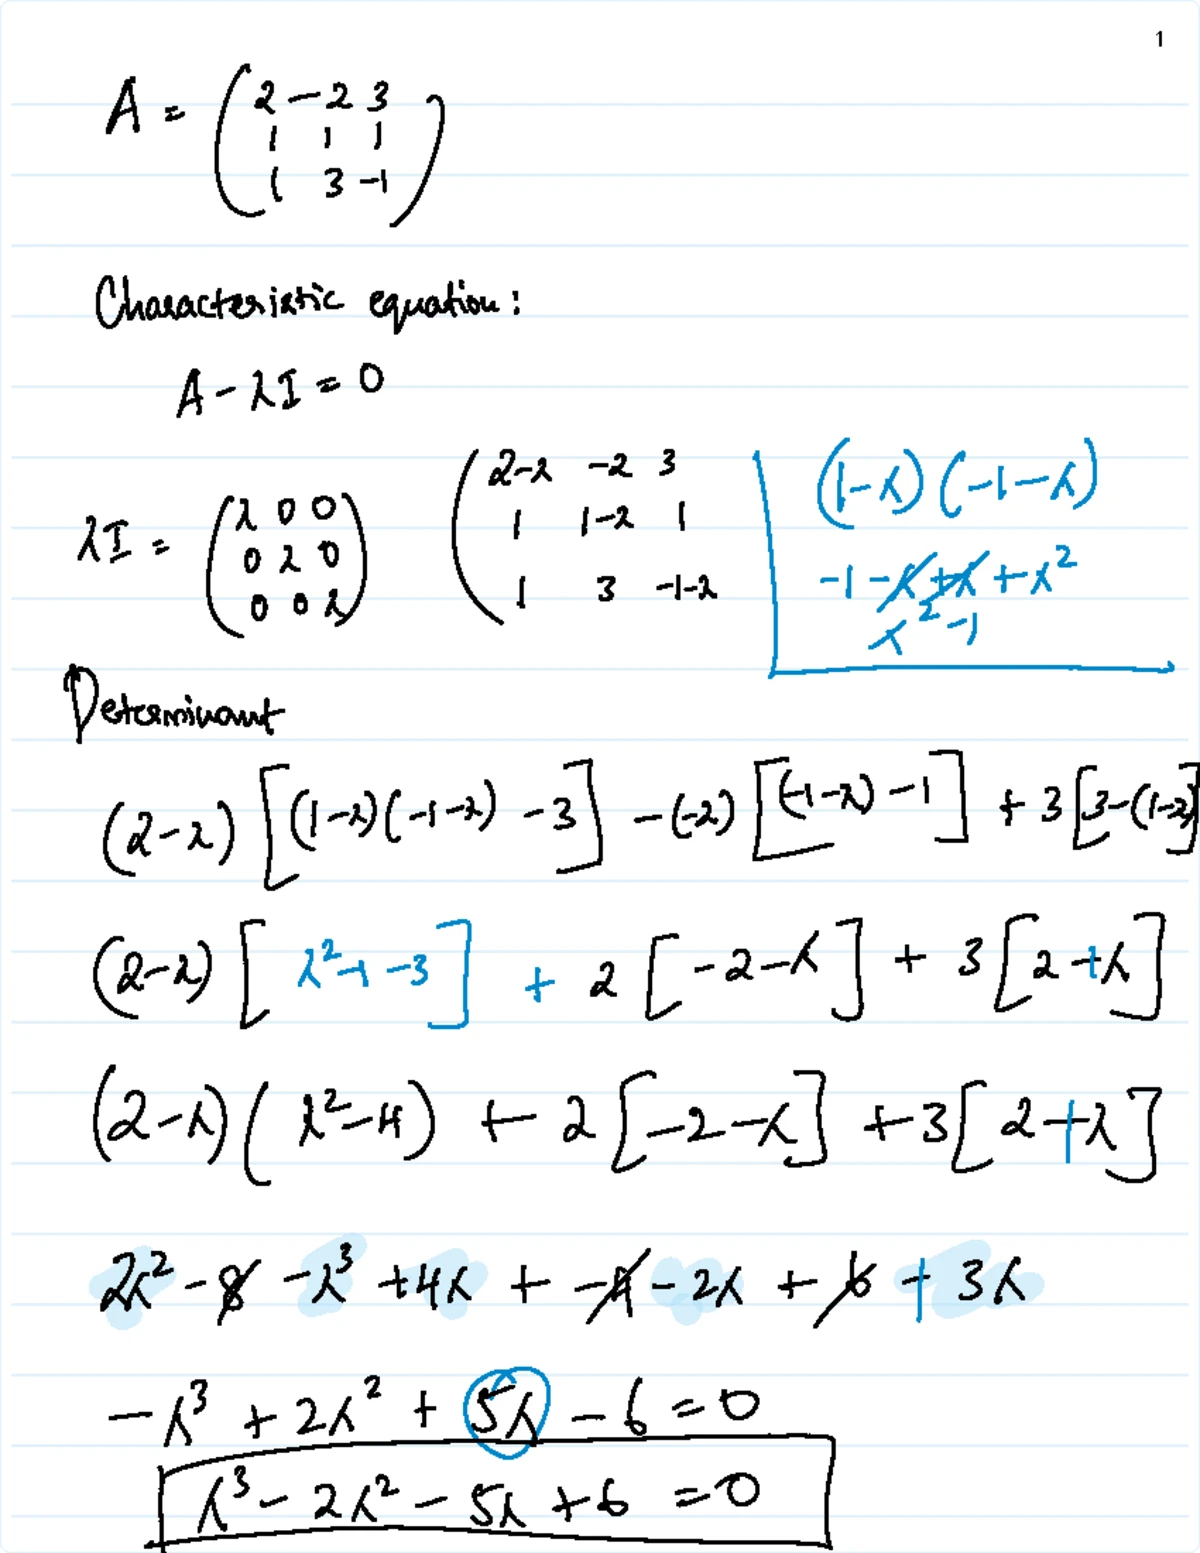 1
A = ( 2 -2 3
1 1 1
1 3 -1 )
Characteristic equation:
A - λI = 0
λI = ( λ 0 0
0 λ 0
0 0 λ )
( 2-λ -2 3
1 1-λ 1
1 3 -1-λ
(1-λ)(-1-λ)
-1 -λ +λ +λ²
λ² -1
Determinant
(2-λ) [(1-λ)(-1-λ) -3] - (-2) [(-1-λ) -1] + 3 [3-(1-λ)]
(2-λ) [ λ²-1 -3 ] + 2 [ -2-λ ] + 3 [ 2+λ ]
(2-λ)( λ²-4) + 2 [ -2-λ ] + 3 [ 2+λ ]
2λ² - 8 - λ³ + 4λ + -4 - 2λ + 6 + 3λ
-λ³ + 2λ² + 5λ - 6 = 0
λ³ - 2λ² - 5λ + 6 = 0